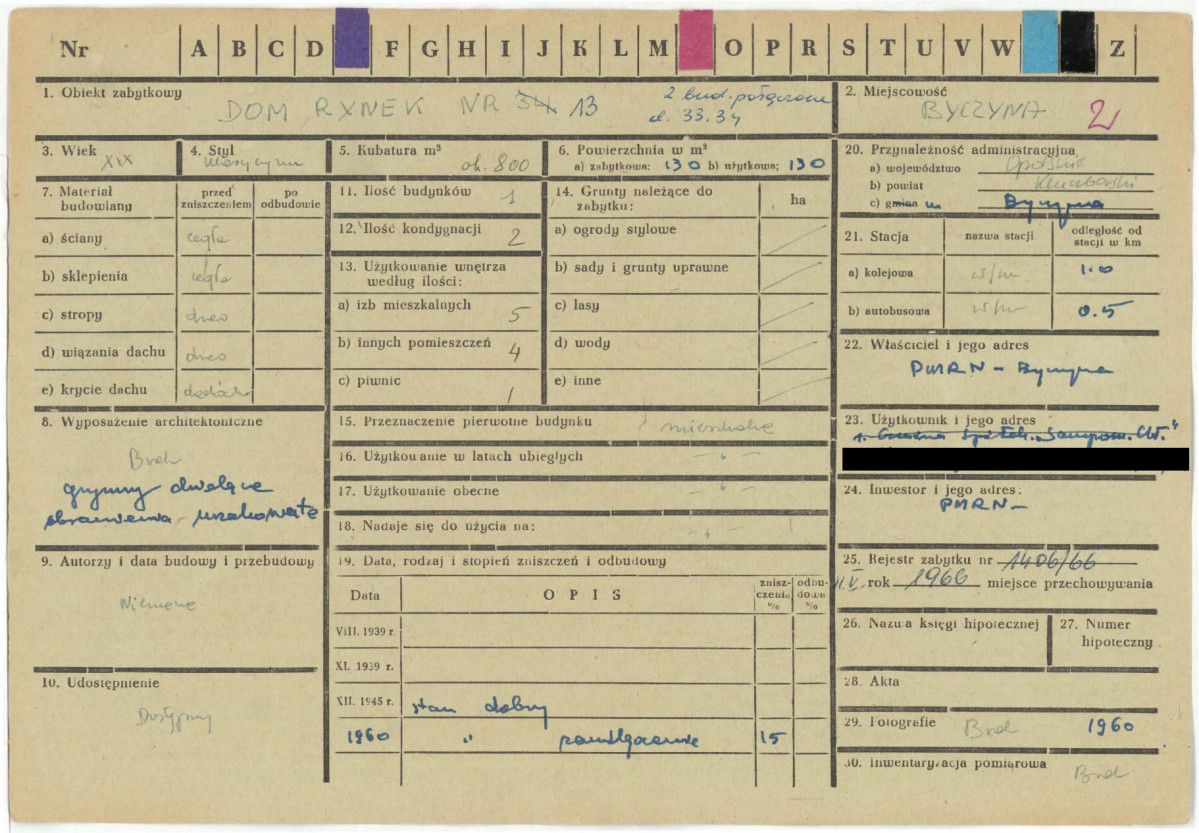 Nr A B C D F G H I J K L M O P R S T U V W Z
1. Obiekt zabytkowy
DOM RYNEK NR 34 13
2 bud. połączone
d. 33.34
2. Miejscowość
BYCZYNA 2
3. Wiek
XIX
4. Styl
klasycyzm
5. Kubatura m³
ok. 800
6. Powierzchnia w m²
a) zabytkowa: 130 b) użytkowa; 130
20. Przynależność administracyjna
a) województwo Opolskie
b) powiat Kluczborski
c) gmina m Byczyna
7. Materiał budowlany
przed zniszczeniem
po odbudowie
a) ściany cegła
b) sklepienia cegła
c) stropy drewo
d) wiązania dachu drewo
e) krycie dachu dachówka
11. Ilość budynków 1
12. Ilość kondygnacji 2
13. Użytkowanie wnętrza
według ilości:
a) izb mieszkalnych 5
b) innych pomieszczeń 4
c) piwnic 1
14. Grunty należące do
zabytku:
ha
a) ogrody stylowe
b) sady i grunty uprawne
c) lasy
d) wody
e) inne
21. Stacja
nazwa stacji
odległość od
stacji w km
a) kolejowa w/m 1.0
b) autobusowa w/m 0.5
22. Właściciel i jego adres
PMRN - Byczyna
8. Wyposażenie architektoniczne
Brak
gzymsy dzielące
obramienia uszakowate
15. Przeznaczenie pierwotne budynku mieszkalne
16. Użytkowanie w latach ubiegłych - " -
17. Użytkowanie obecne - " -
18. Nadaje się do użycia na: - " -
23. Użytkownik i jego adres
1. Gminna Spółdz. „Sampom. Chł."
24. Inwestor i jego adres:
PMRN -
9. Autorzy i data budowy i przebudowy
Nieznane
19. Data, rodzaj i stopień zniszczeń i odbudowy
Data
OPIS
znisz-
czenia
%
odbu-
dowa
%
VIII. 1939 r.
XI. 1939 r.
XII. 1945 r. stan dobry
1960 " 15
25. Rejestr zabytku nr 1406/66
11.V. rok 1966 miejsce przechowywania
26. Nazwa księgi hipotecznej
27. Numer
hipoteczny
10. Udostępnienie
Dostępny
28. Akta
29. Fotografie Brak 1960
30. Inwentaryzacja pomiarowa
Brak